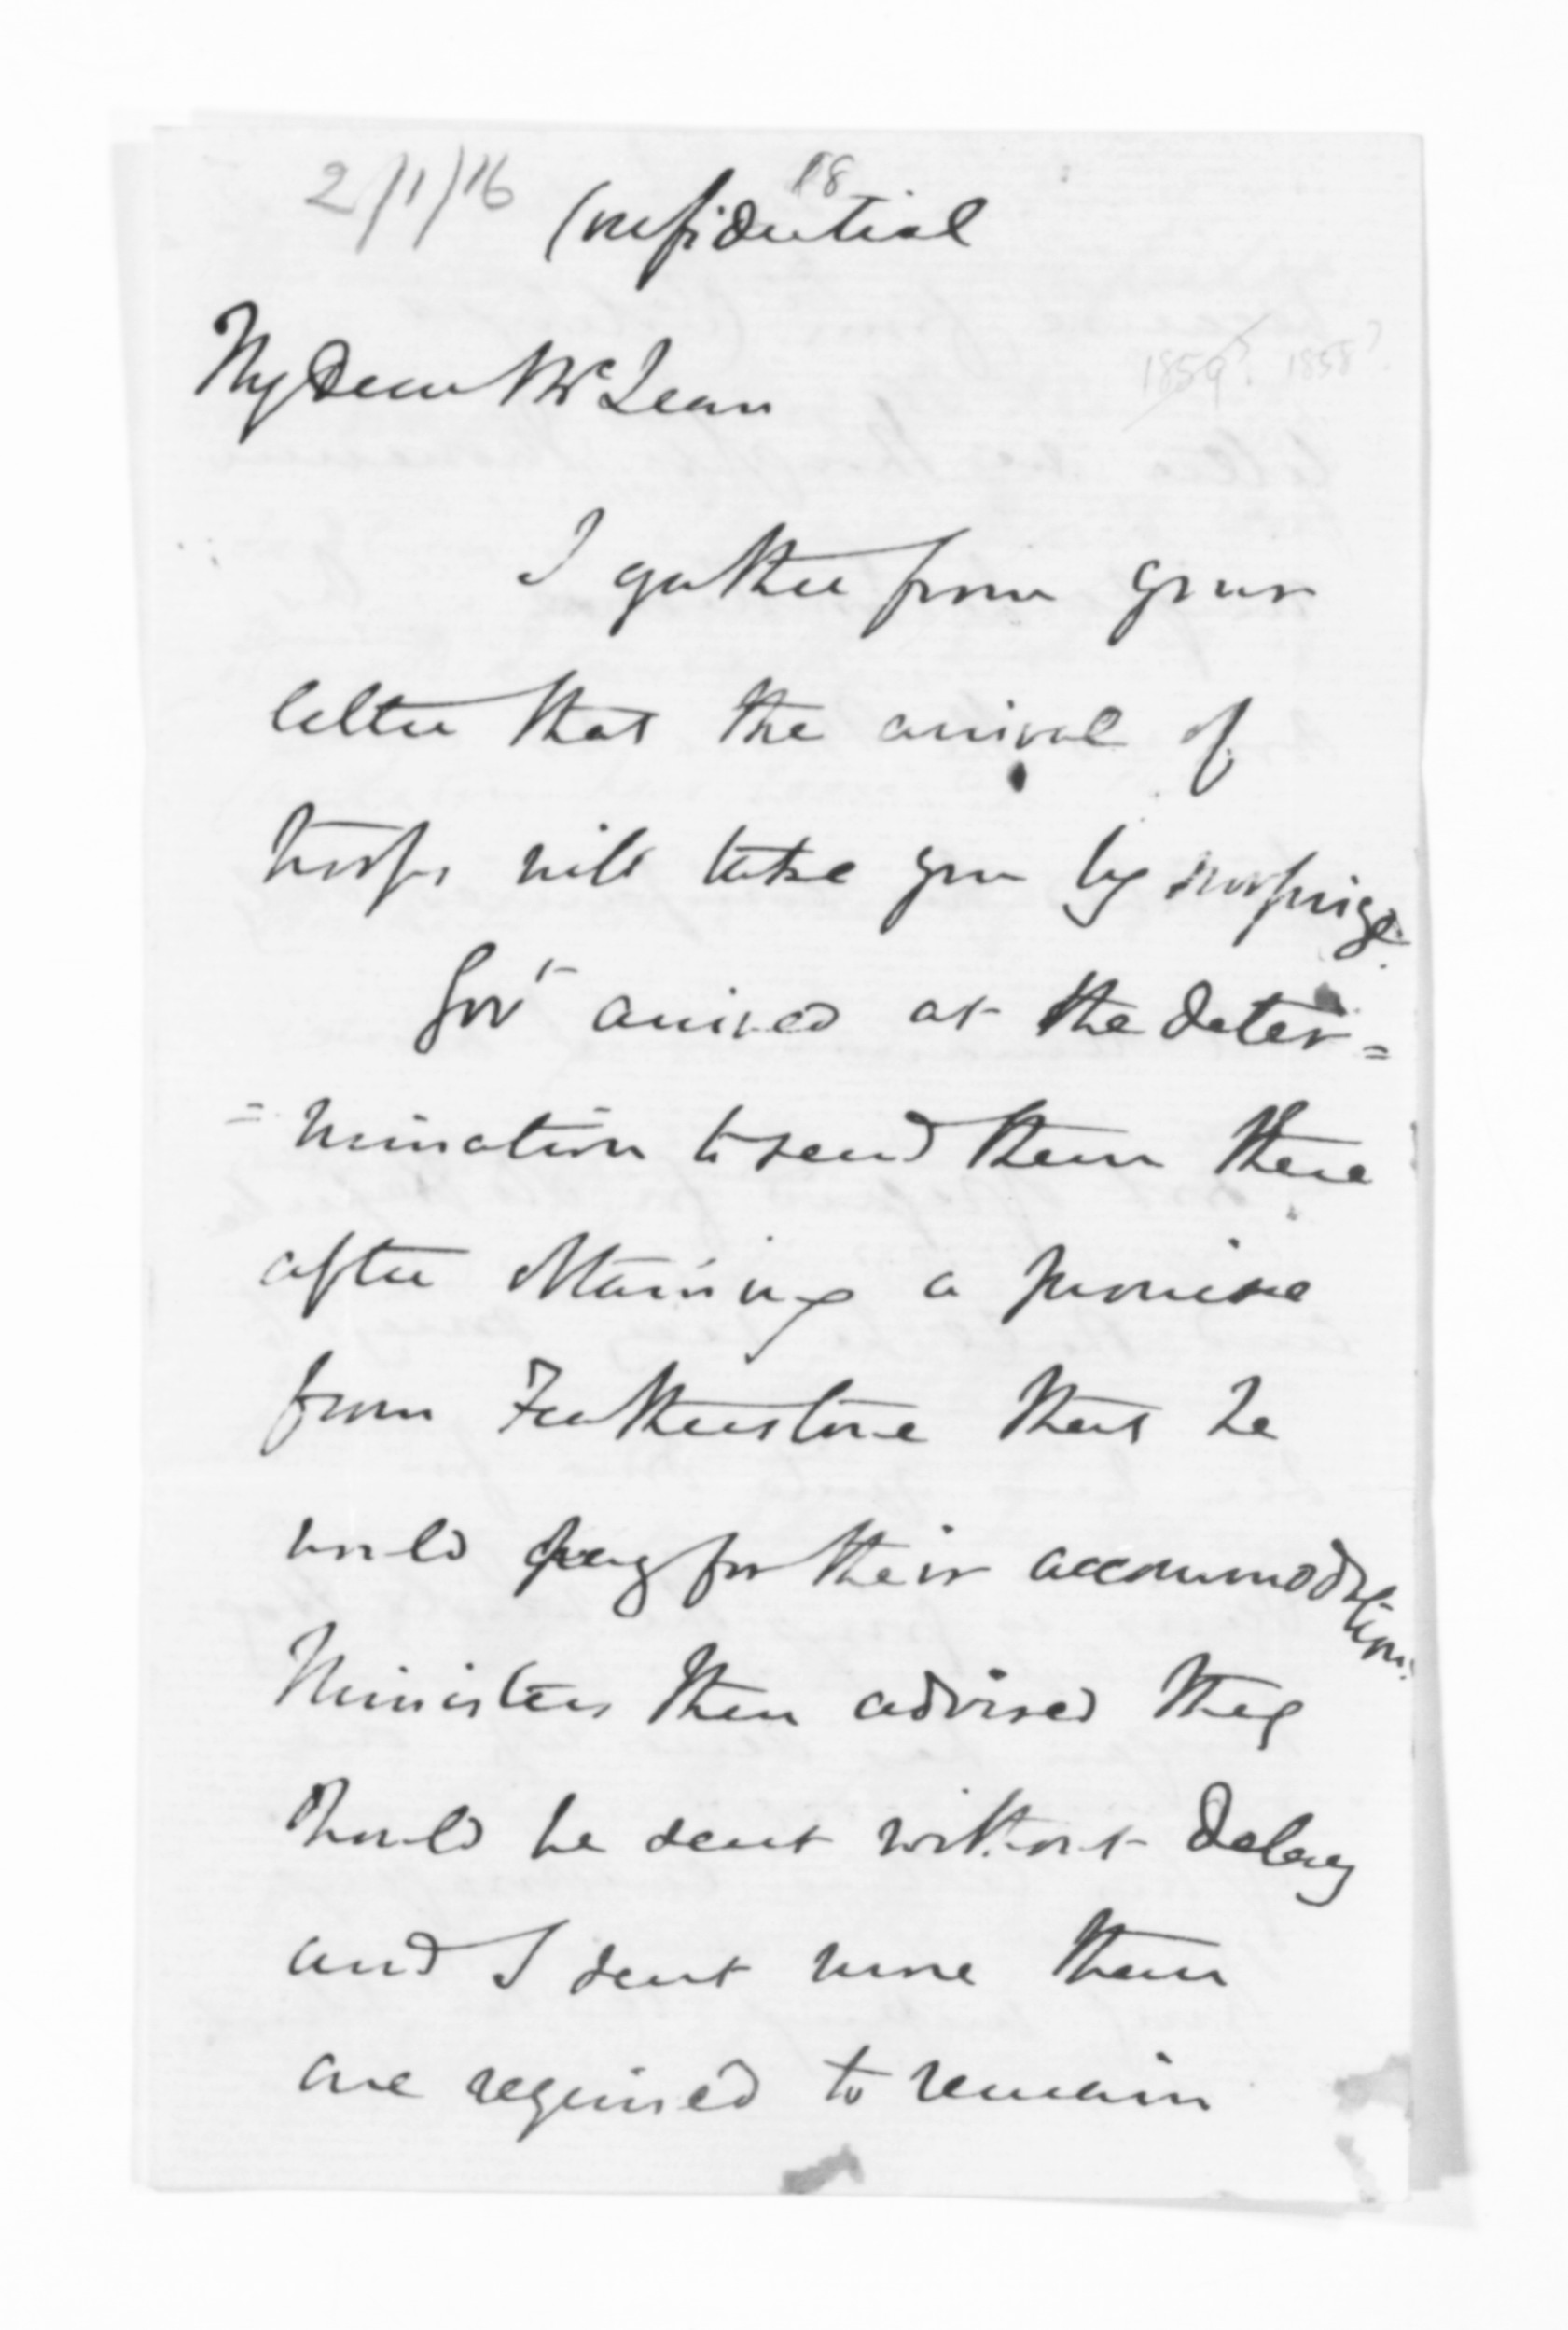 2/1/16
18
Confidential
My Dear McLean
1859? 1858?
I gather from your
letter that the arrival of
troops will take you by surprize.
Govt arrived at the deter=
=mination to send them there
after obtaining a promise
from Featherstone that he
would pay for their accommodation.
Ministers then advised they
should be sent without delay
and I sent none than
are required to remain